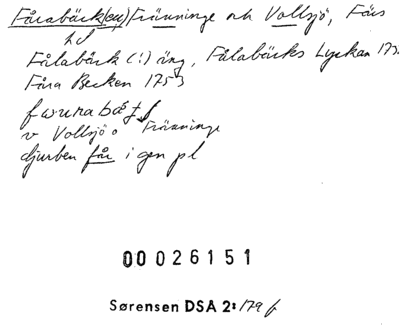 Fårabäck(en) Fränninge och Vollsjö, Färs
hd
Fålabäck (!) äng, Fålabäcks Lyckan 173
Fåra Becken 1753
v Vollsjö o Fränninge
djurben får i gen pl
00 026151
Sørensen DSA 2: 179 f